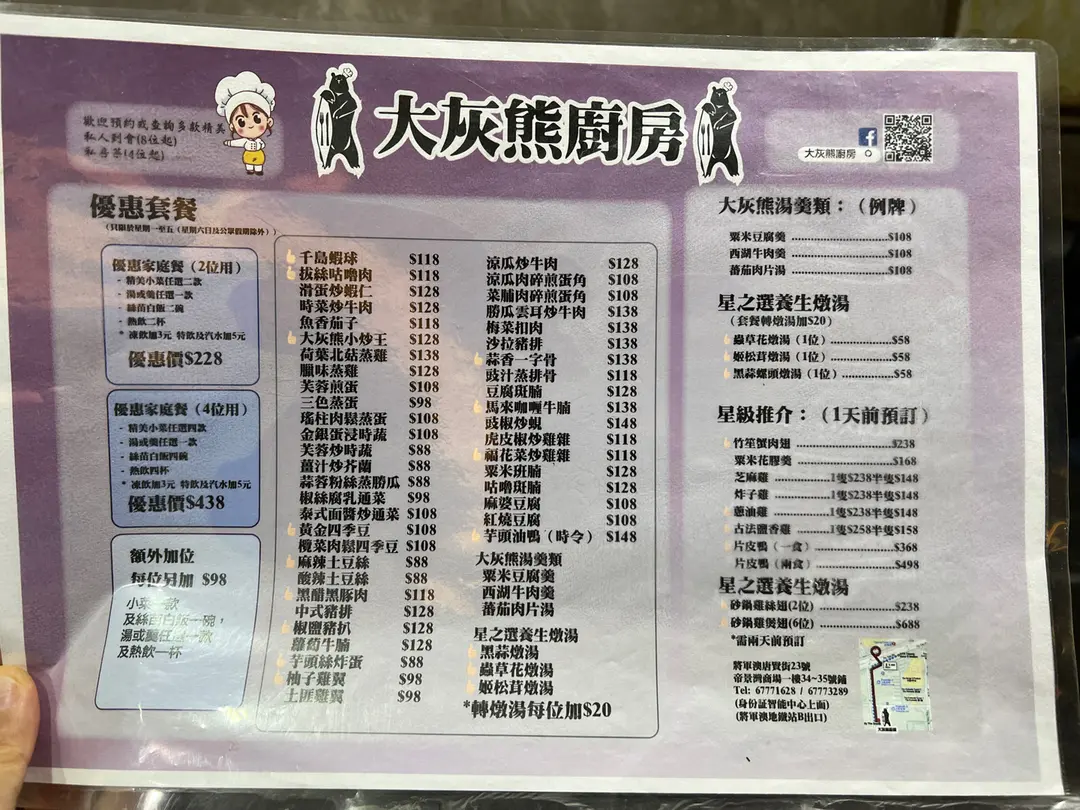 大灰熊廚房
歡迎預約或查詢多款精美
私人到會(8位起)
私房菜(4位起)
大灰熊廚房
優惠套餐
(只限於星期一至五(星期六日及公眾假期除外))
優惠家庭餐(2位用)
- 精美小菜任選二款
- 湯或羹任選一款
- 絲苗白飯二碗
- 熱飲二杯
* 凍飲加3元 特飲及汽水加5元
優惠價$228
優惠家庭餐(4位用)
- 精美小菜任選四款
- 湯或羹任選一款
- 絲苗白飯四碗
- 熱飲四杯
* 凍飲加3元 特飲及汽水加5元
優惠價$438
額外加位
每位另加 $98
小菜一款
及絲苗白飯一碗,
湯或羹任選一款
及熱飲一杯
千島蝦球 $118
拔絲咕嚕肉 $118
滑蛋炒蝦仁 $128
時菜炒牛肉 $128
魚香茄子 $118
大灰熊小炒王 $128
荷葉北菇蒸雞 $138
臘味蒸雞 $128
芙蓉煎蛋 $108
三色蒸蛋 $98
瑤柱肉鬆蒸蛋 $108
金銀蛋浸時蔬 $108
芙蓉炒時蔬 $88
薑汁炒芥蘭 $88
蒜蓉粉絲蒸勝瓜 $88
椒絲腐乳通菜 $98
泰式面醬炒通菜 $108
黃金四季豆 $108
欖菜肉鬆四季豆 $108
麻辣土豆絲 $88
酸辣土豆絲 $88
黑醋黑豚肉 $118
中式豬排 $128
椒鹽豬扒 $128
蘿蔔牛腩 $128
芋頭絲炸蛋 $88
柚子雞翼 $98
土匪雞翼 $98
涼瓜炒牛肉 $128
涼瓜肉碎煎蛋角 $108
菜脯肉碎煎蛋角 $108
勝瓜雲耳炒牛肉 $138
梅菜扣肉 $138
沙拉豬排 $138
蒜香一字骨 $138
豉汁蒸排骨 $118
豆腐斑腩 $128
馬來咖喱牛腩 $138
豉椒炒蜆 $148
虎皮椒炒雞雜 $118
福花菜炒雞雜 $118
粟米班腩 $128
咕嚕斑腩 $128
麻婆豆腐 $108
紅燒豆腐 $108
芋頭油鴨(時令) $148
大灰熊湯羹類
粟米豆腐羹
西湖牛肉羹
蕃茄肉片湯
星之選養生燉湯
黑蒜燉湯
蟲草花燉湯
姬松茸燉湯
*轉燉湯每位加$20
大灰熊湯羹類:(例牌)
粟米豆腐羹 ........................$108
西湖牛肉羹 ........................$108
蕃茄肉片湯 ........................$108
星之選養生燉湯
(套餐轉燉湯加$20)
蟲草花燉湯(1位)....................$58
姬松茸燉湯(1位)....................$58
黑蒜螺頭燉湯(1位)..................$58
星級推介:(1天前預訂)
竹笙蟹肉翅 ........................$238
粟米花膠羹 ........................$168
芝麻雞 ..............1隻$238半隻$148
炸子雞 ..............1隻$238半隻$148
蔥油雞 ..............1隻$238半隻$148
古法鹽香雞 ..........1隻$258半隻$158
片皮鴨(一食)......................$368
片皮鴨(兩食)......................$498
星之選養生燉湯
砂鍋雞絲翅(2位)....................$238
砂鍋雞煲翅(6位)....................$688
*需兩天前預訂
將軍澳唐賢街23號
帝景灣商場一樓34~35號鋪
Tel: 67771628 / 67773289
(身份証智能中心上面)
(將軍澳地鐵站B出口)
大灰熊廚房